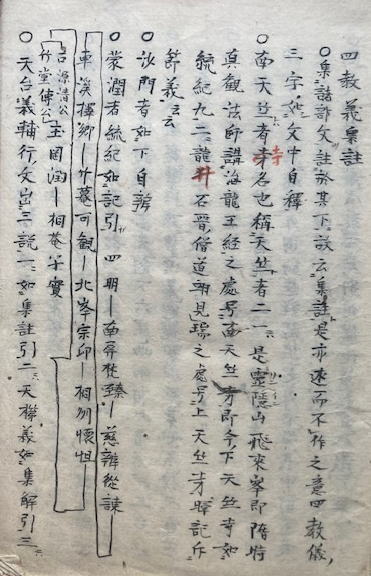 四教義集註
○集諸部文註於其下故云集註是亦述而不作之意四教儀
三字如文中自釋
○南天竺者寺名也稱天竺者二一是靈隱山飛來峯即隋時
真觀法師講海龍王經之處号南天竺寺即今下天竺寺如
統紀九二龍井石晉僧道翊見瑞之處号上天竺寺暉記斥
節義云云
○沙門者如下自辨
○蒙潤者統紀如記引 四明 南屏梵臻 慈辯從諫
車溪擇卿 竹菴可觀 北峯宗印 桐別懷坦
古源清公 玉岡潤 桐菴子實
竹堂傳公
○天台義輔行文出三說一如集註引二天機義如集解引三